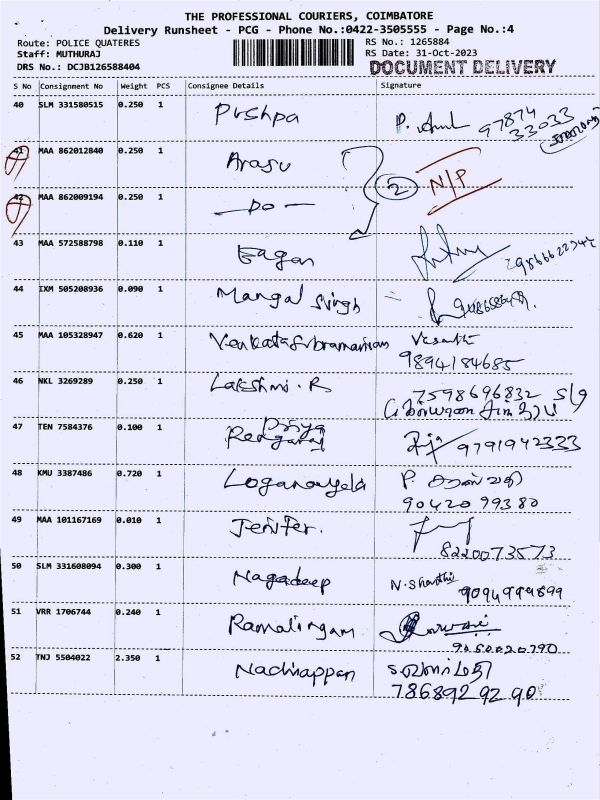 THE PROFESSIONAL COURIERS, COIMBATORE
Delivery Runsheet - PCG - Phone No.:0422-3505555 - Page No.:4
Route: POLICE QUATERES
Staff: MUTHURAJ
DRS No.: DCJB126588404
RS No.: 1265884
RS Date: 31-Oct-2023
DOCUMENT DELIVERY
S No Consignment No Weight PCS Consignee Details Signature
40 SLM 331580515 0.250 1 Pushpa P. 97874
33033
41 MAA 862012840 0.250 1 Arasu
42 MAA 862009194 0.250 1 — Do — 2 N/P
43 MAA 572588798 0.110 1 Eagan
44 IXM 505208936 0.090 1 Mangal Singh
45 MAA 105328947 0.620 1 Venkatasubramaniam Vasanth
9894184685
46 NKL 3269289 0.250 1 Lakshmi. R 7598696832 S/o
47 TEN 7584376 0.100 1 Priya
Rengaraj 9791942333
48 KMU 3387486 0.720 1 Loganayaki P.
90420 99380
49 MAA 101167169 0.010 1 Jenifer.
8220073573
50 SLM 331608094 0.300 1 Nagadeep N. Shanthi 9094999899
51 VRR 1706744 0.240 1 Ramalingam
9050020790
52 TNJ 5504022 2.350 1 Nachiappan
786892 92 90